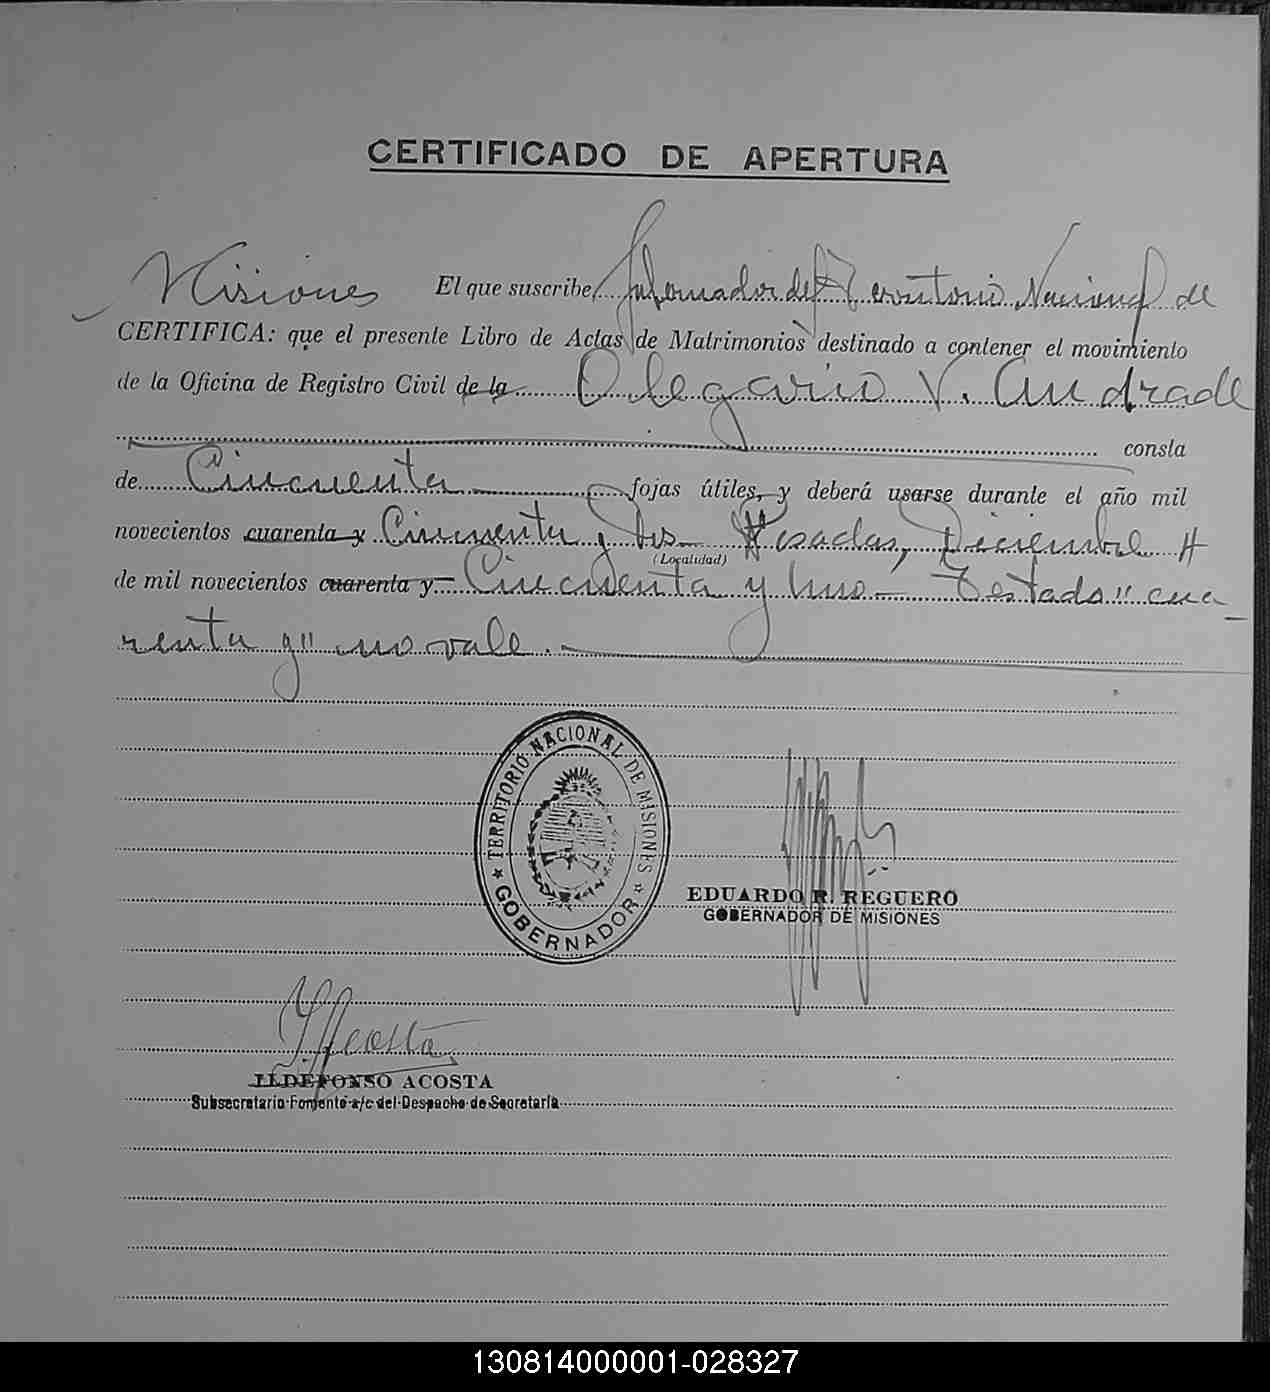 CERTIFICADO DE APERTURA
El que suscribe, Gobernador del Territorio Nacional de
Misiones
CERTIFICA: que el presente Libro de Actas de Matrimonios destinado a contener el movimiento
de la Oficina de Registro Civil de la Olegario V. Andrade
consta
de Cincuenta fojas útiles, y deberá usarse durante el año mil
novecientos cuarenta y Cincuenta y dos Posadas, Diciembre 4
(Localidad)
de mil novecientos cuarenta y Cincuenta y uno - Testado "cua-
renta y" no vale. -
TERRITORIO NACIONAL DE MISIONES
GOBERNADOR
EDUARDO R. REGUERO
GOBERNADOR DE MISIONES
I. Acosta
ILDEFONSO ACOSTA
Subsecretario Fomento a/c del Despacho de Secretaría
130814000001-028327